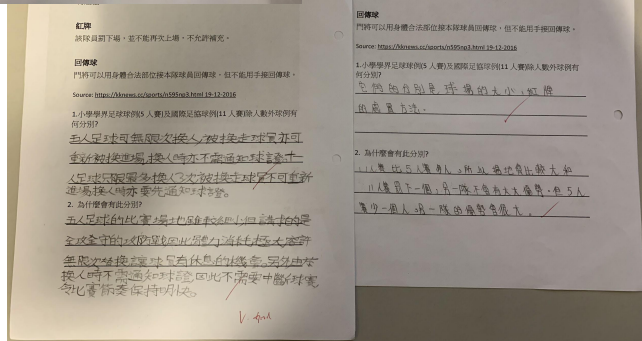 紅牌
該隊員罰下場，並不能再次上場，不允許補充。
回傳球
門將可以用身體合法部位接本隊球員回傳球，但不能用手接回傳球。
Source: https://kknews.cc/sports/n595np3.html 19-12-2016
1.小學學界足球球例(5人賽)及國際足協球例(11人賽)除人數外球例有
何分別?
五人足球可無限次換人，被換走球員亦可
重新被換進場，換人時亦不需通知球證。十
一人足球只限最多換人3次，被換走球員不可重新
進場，換人時亦要先通知球證。
2. 為什麼會有此分別?
五人足球的比賽場地雖較細小但講求的是
全攻全守的攻防戰，因此體力消耗極大，容許
無限次替換讓球員有休息的機會。另外由於
換人時不需通知球證，因此不需要中斷球賽
令比賽節奏保持明快。
回傳球
門將可以用身體合法部位接本隊球員回傳球，但不能用手接回傳球。
Source: https://kknews.cc/sports/n595np3.html 19-12-2016
1.小學學界足球球例(5人賽)及國際足協球例(11人賽)除人數外球例有
何分別?
它們的分別是球場的大小，紅牌
的處置方法。
2. 為什麼會有此分別?
11人賽比5人賽多人，所以場地會比較大和
11人賽罰下一個，另一隊不會有太大優勢，但5人
賽少一個人，另一隊的優勢會很大。